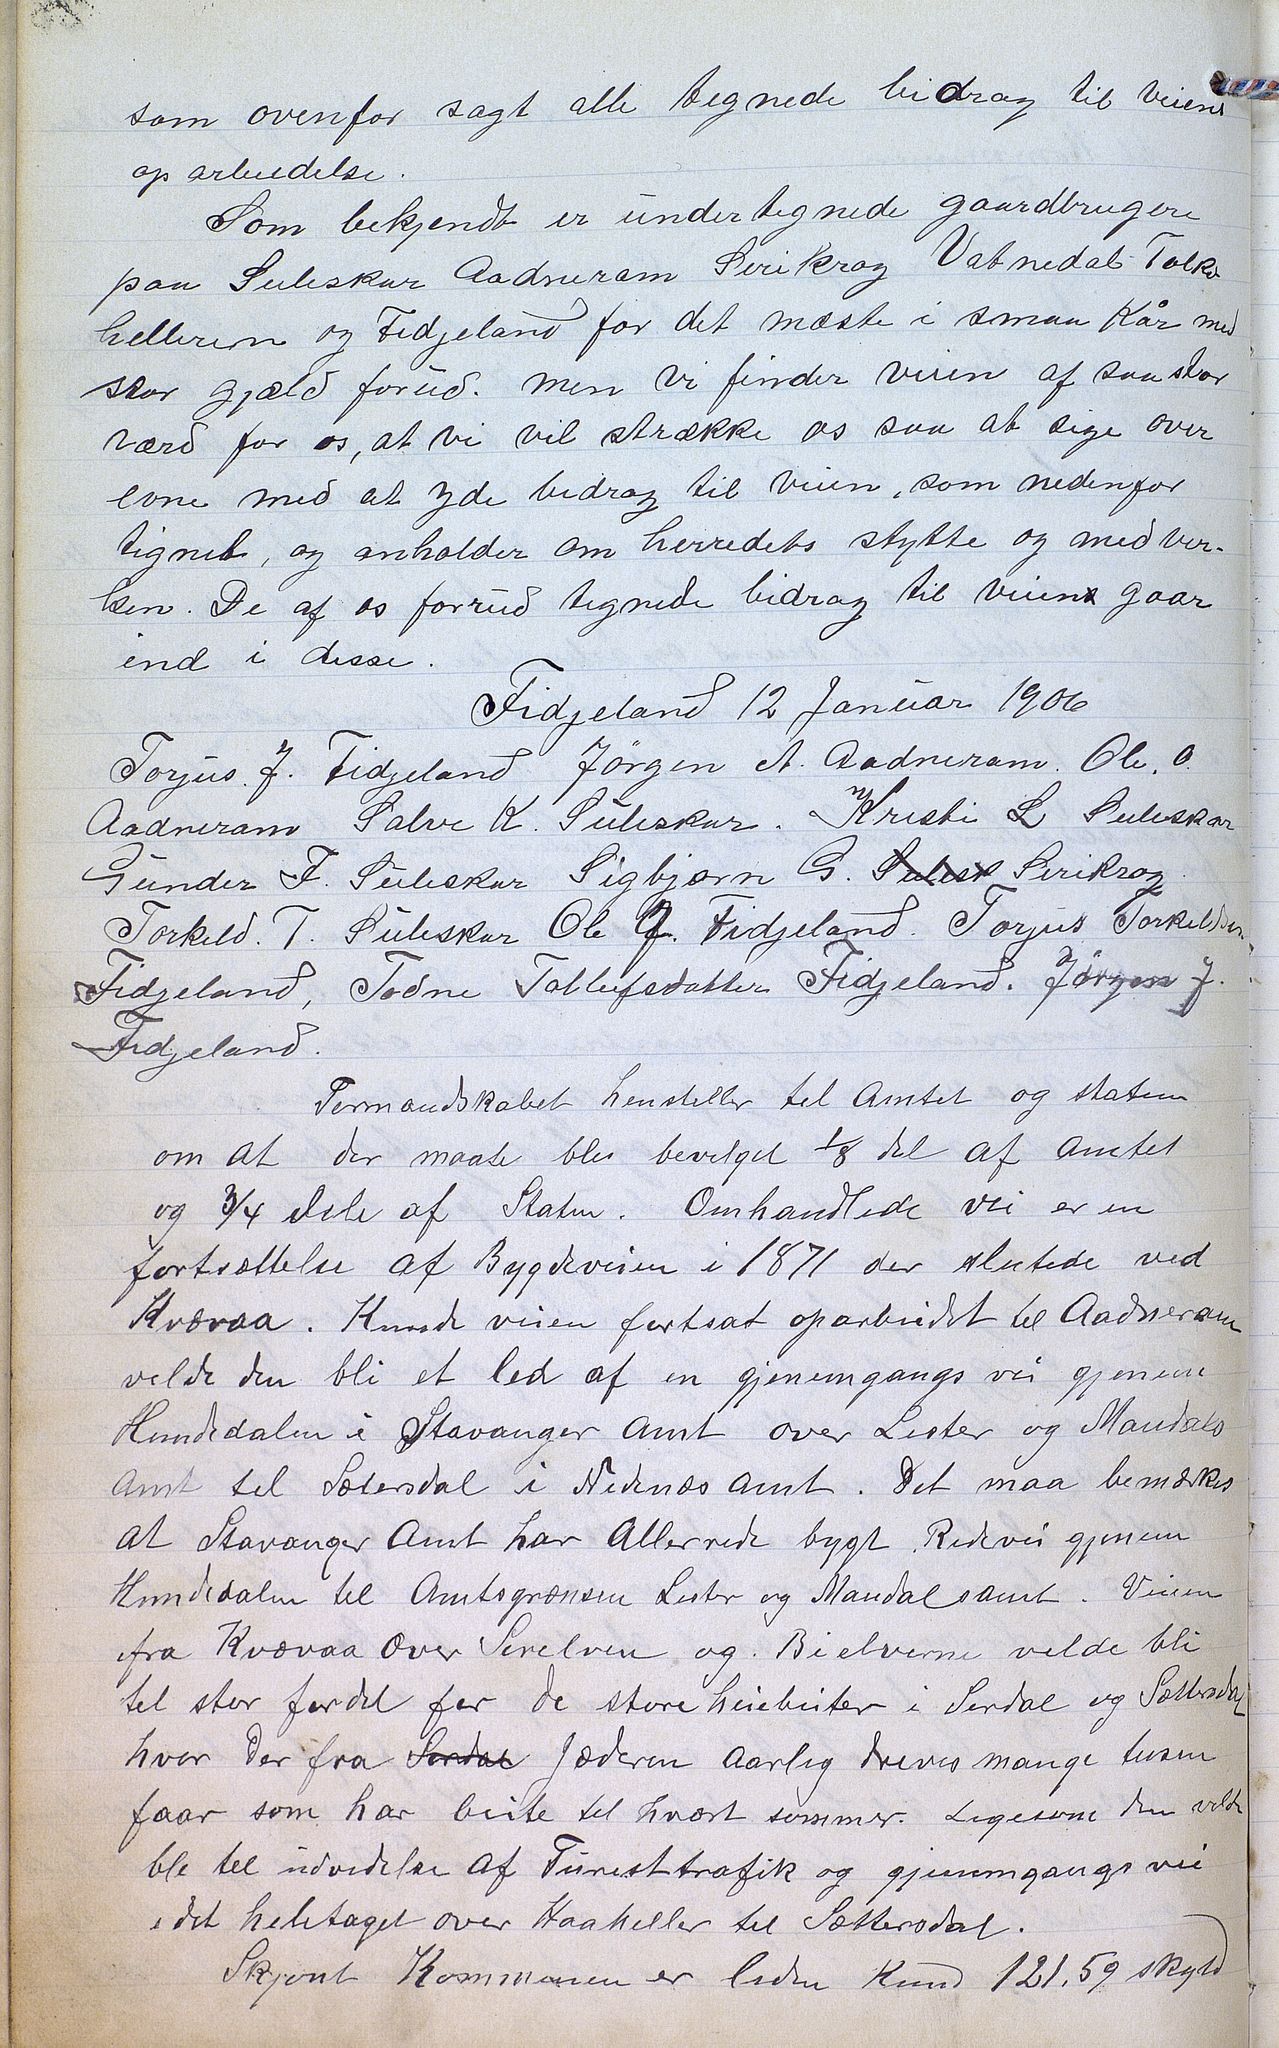 som ovenfor sagt alle tegnede bidrag til veiens
oparbeidelse.
Som bekjendt er undertegnede gaardbrugere
paa Suleskar Aadneram Serikrag Vatnedal Tolke
helleren og Fidjeland for det mæste i smaa Kår med
stor gjæld forud. men vi finder veien af saa stor
værd for os, at vi vil strække os saa at sige over
evne med at yde bidrag til veien, som nedenfor
tignet, og anholder om herredets støtte og medvir-
ken. De af os forrud tegnede bidrag til veiens gaar
ind i disse.
Fidjeland 12 Januar 1906
Torjus J. Fidjeland Jörgen A. Aadneram. Ole. O.
Aadneram Salve K. Suleskar. Kristi L Suleskar
Gunder F. Suleskar Sigbjørn G. Serikrag
Torkeld. T. Suleskar Ole J. Fidjeland. Torjus Torkeldsen
Fidjeland, Todne Tollefsdatter Fidjeland. Jörgen J.
Fidjeland.
Formandskabet henstiller til Amtet og staten
om at der maate bli bevilget 1/8 del af amtet
og 3/4 dele af Staten. Omhandlede vei er en
fortsættelse af Bygdeveien i 1871 der slutede ved
Kvævaa. Kunde veien fortsat oparbeidet til Aadneram
vilde den bli et led af en gjenemgangs vei gjenem
Hundedalen i Stavanger Amt over Lister og Mandals
Amt til Sætersdal i Nedenæs Amt. Det maa bemærkes
at Stavanger Amt har Allerrede bygt Ridevei gjenem
Hundedalen til Amtsgrænsen Lister og Mandalsamt. Veien
fra Kvævaa over Sirelven og Bielverne vilde bli
til stor fordel for de store heiebeiter i Serdal og Sættersdal
hvor Der fra Serdal Jæderen Aarlig drives mange tusen
faar som har beite til hvært sommer. Ligesom den vilde
bli til udvidelse af Turesttrafik og gjenemgangs vei
i det heletaget over Haaheller til Sættersdal.
Skjønt Kommunen er liden Kund 121,59 skyld